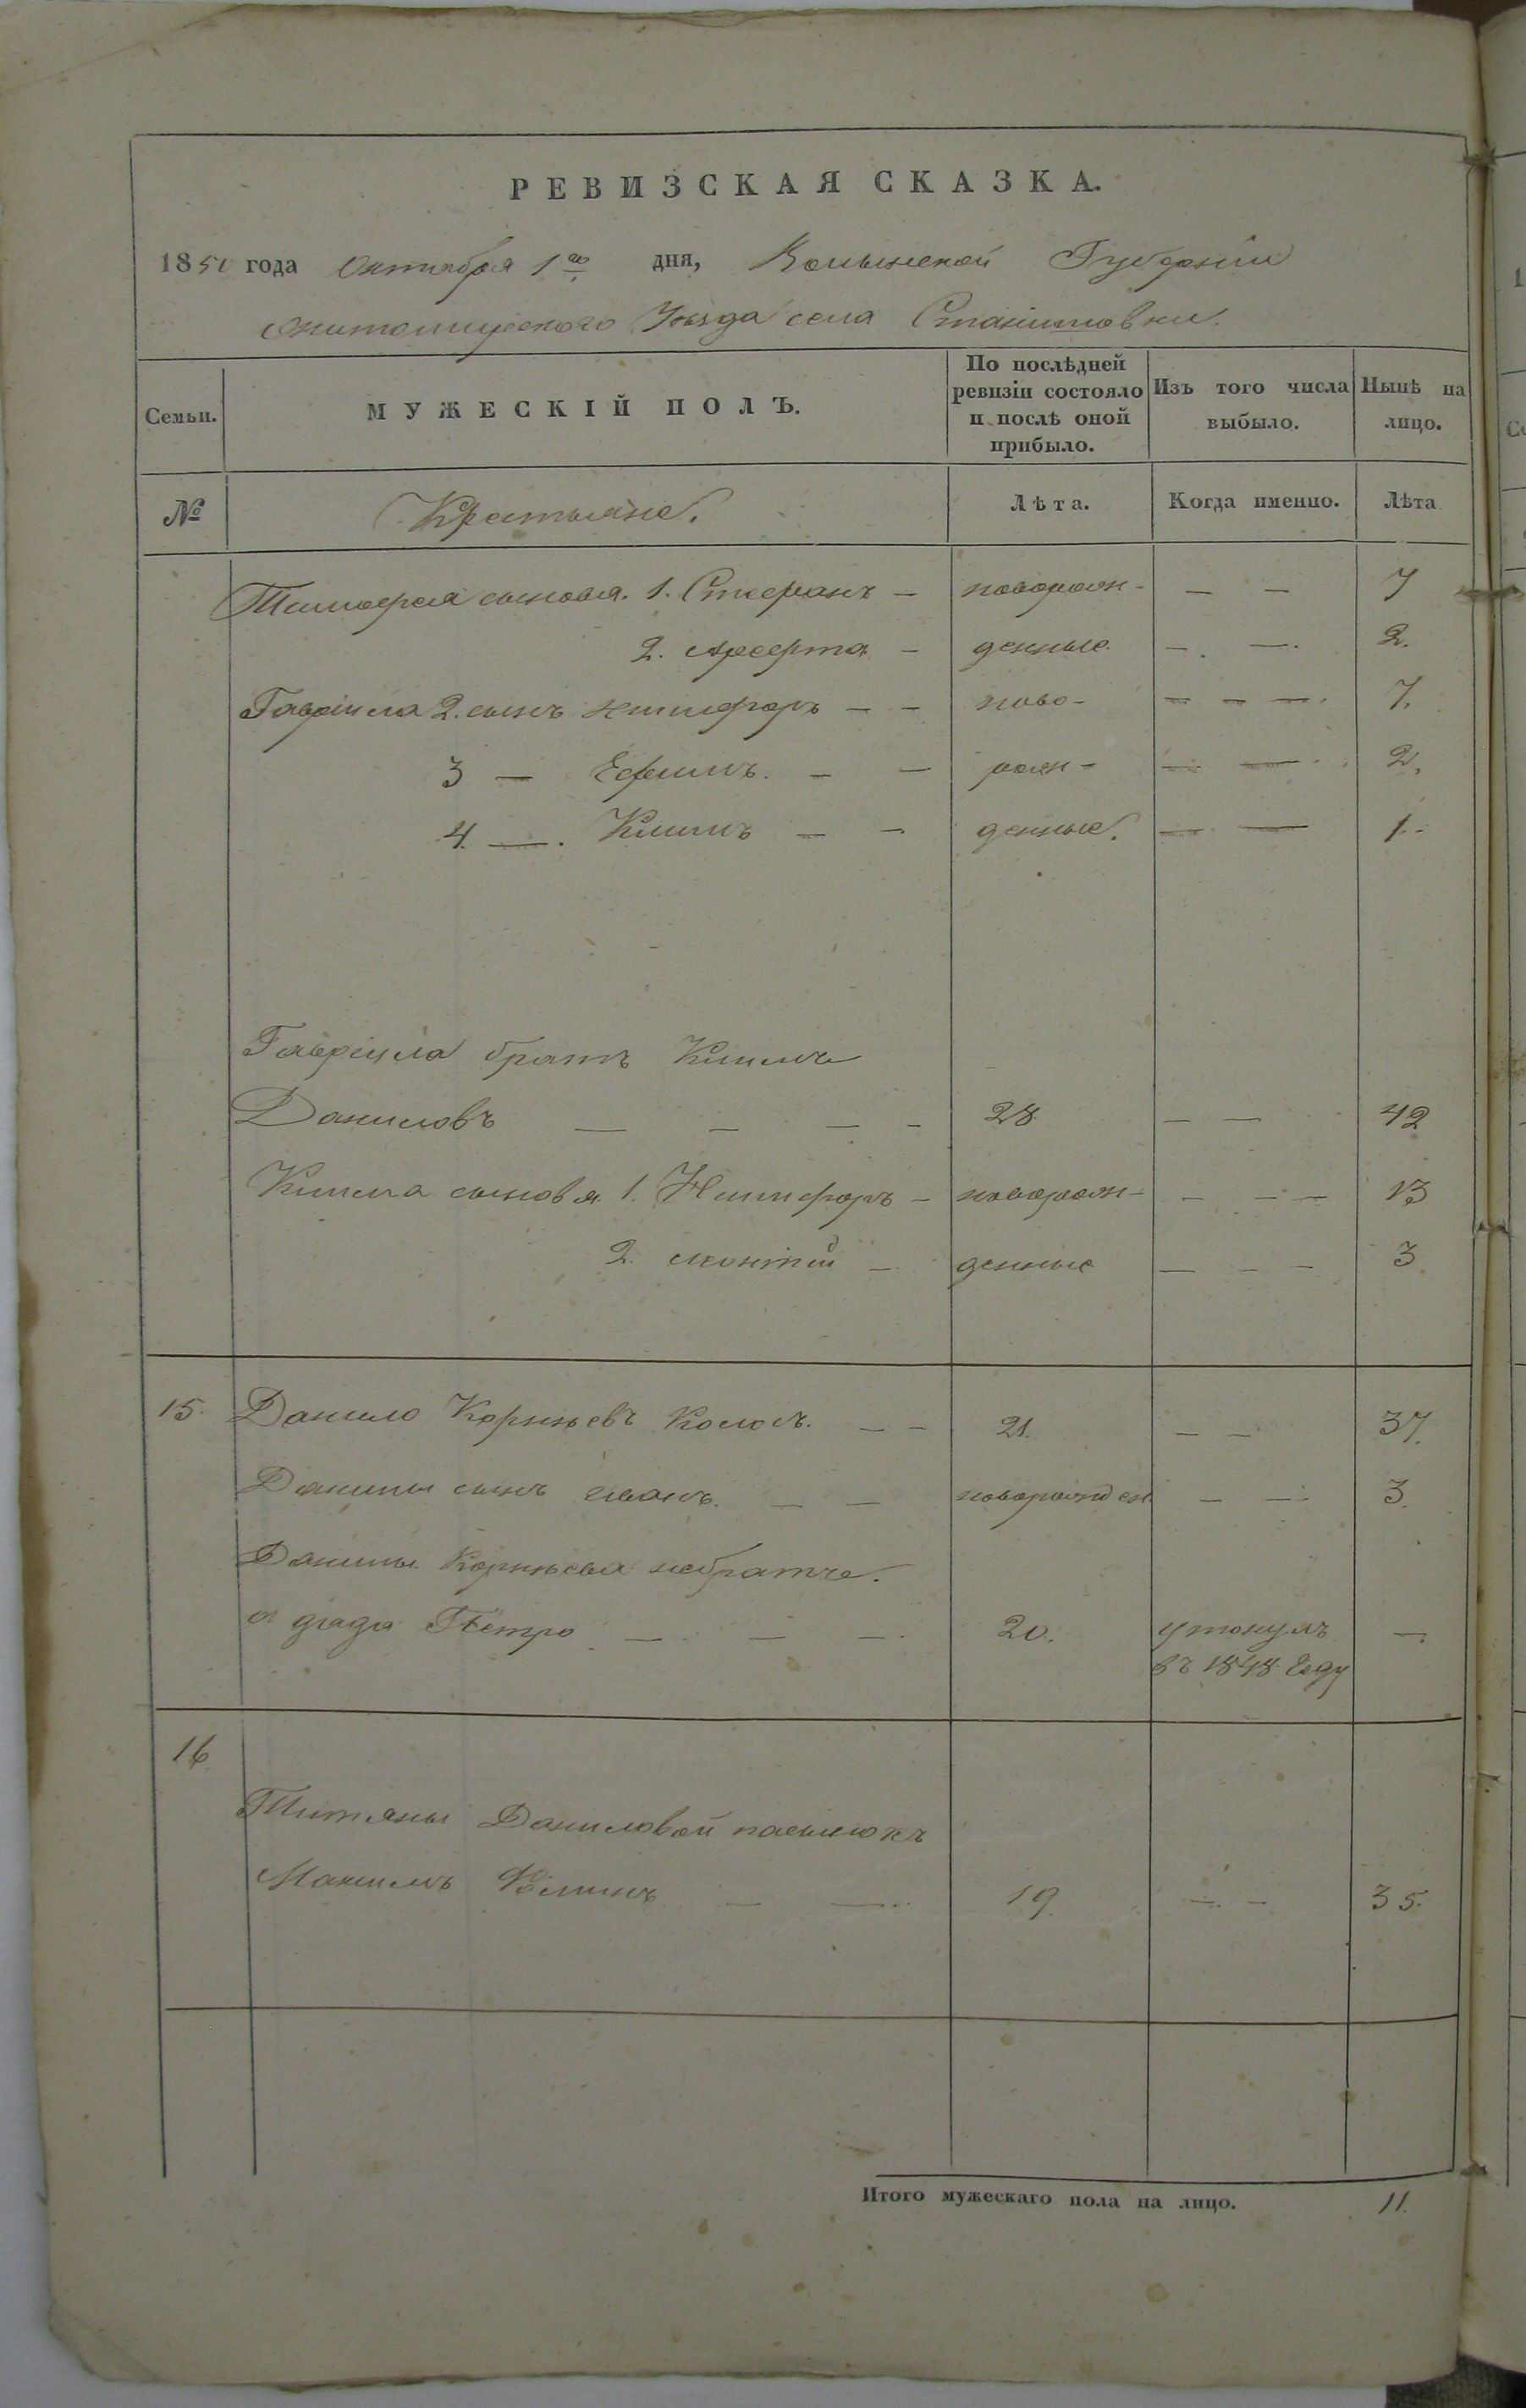 РЕВИЗСКАЯ СКАЗКА.
1850 года Октября 1го дня, Волынской Губернiи
Житомирского Уѣзда села Станишовки.
Семьи. МУЖЕСКIЙ ПОЛЪ. По послѣдней ревизiи состояло и послѣ оной прибыло. Изъ того числа выбыло. Нынѣ на лицо.
№ Крестьяне. Лѣта. Когда именно. Лѣта
Тимофея сыновья. 1. Стефанъ — новорож- — — 7
2. — денные — — 2.
Гаврiила 2. сынъ Никифоръ — — ново- — — — 7.
3 — Ефимъ. — — рож- — — 2.
4. — Климъ — — денные. — — 1.
Гаврiила братъ Климъ
Даниловъ — — — — 28 — — 42
Клима сыновья 1. Никифоръ — новорож- — — — 13
2. — денные — — — 3
15. Данило Корнѣевъ — — 21. — — 37.
Данилы сынъ Иванъ. — — новорожден — — 3.
Данилы Корнѣева
Петро — — — 20. утонулъ —
въ 1848 году
16.
Титяны Даниловой пасынокъ
Максимъ — — 19. — — 35.
Итого мужескаго пола на лицо. 11.